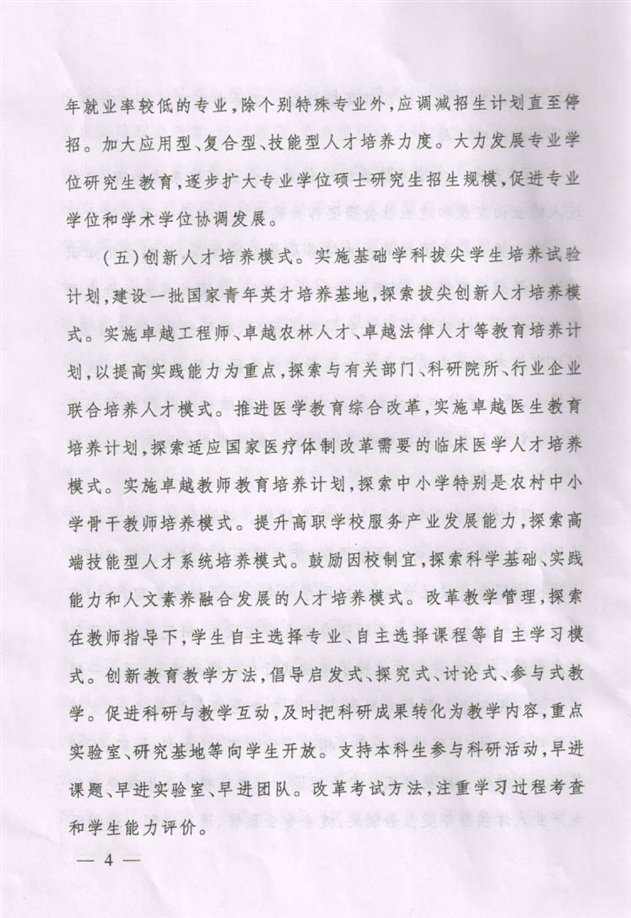 年就业率较低的专业,除个别特殊专业外,应调减招生计划直至停
招。加大应用型、复合型、技能型人才培养力度。大力发展专业学
位研究生教育,逐步扩大专业学位硕士研究生招生规模,促进专业
学位和学术学位协调发展。
(五)创新人才培养模式。实施基础学科拔尖学生培养试验
计划,建设一批国家青年英才培养基地,探索拔尖创新人才培养模
式。实施卓越工程师、卓越农林人才、卓越法律人才等教育培养计
划,以提高实践能力为重点,探索与有关部门、科研院所、行业企业
联合培养人才模式。推进医学教育综合改革,实施卓越医生教育
培养计划,探索适应国家医疗体制改革需要的临床医学人才培养
模式。实施卓越教师教育培养计划,探索中小学特别是农村中小
学骨干教师培养模式。提升高职学校服务产业发展能力,探索高
端技能型人才系统培养模式。鼓励因校制宜,探索科学基础、实践
能力和人文素养融合发展的人才培养模式。改革教学管理,探索
在教师指导下,学生自主选择专业、自主选择课程等自主学习模
式。创新教育教学方法,倡导启发式、探究式、讨论式、参与式教
学。促进科研与教学互动,及时把科研成果转化为教学内容,重点
实验室、研究基地等向学生开放。支持本科生参与科研活动,早进
课题、早进实验室、早进团队。改革考试方法,注重学习过程考查
和学生能力评价。
— 4 —